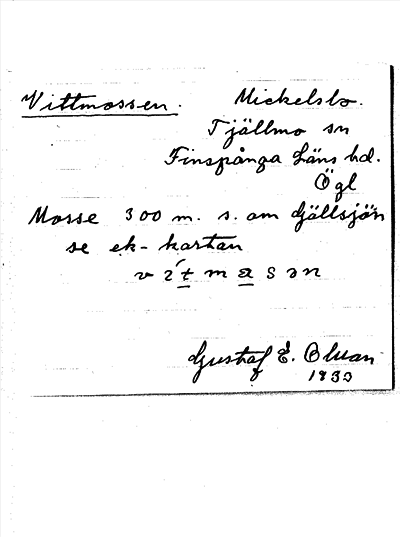 Vittmossen. Mickelsbo.
Tjällmo sn
Finspånga läns hd.
Ögl
Mosse 300 m. s. om Gjällsjön
se ek-kartan
Gustaf E.